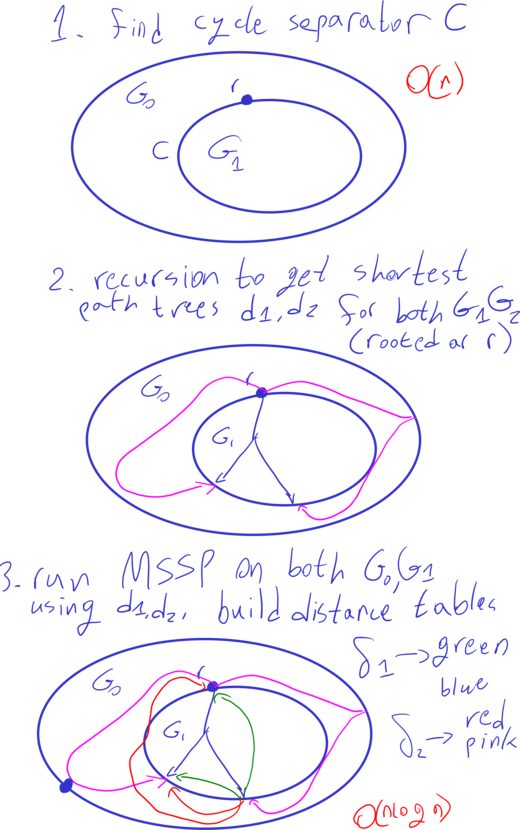 1. find cycle separator C
G₀
r
O(n)
C
G₁
2. recursion to get shortest
path trees d1,d2 for both G₁G₂
(rooted ar r)
G₀
r
G₁
3. run MSSP on both G₀,G1
using d1,d2, build distance tables
G₀
r
G₁
δ₁→green
blue
δ₂→red
pink
O(n log n)